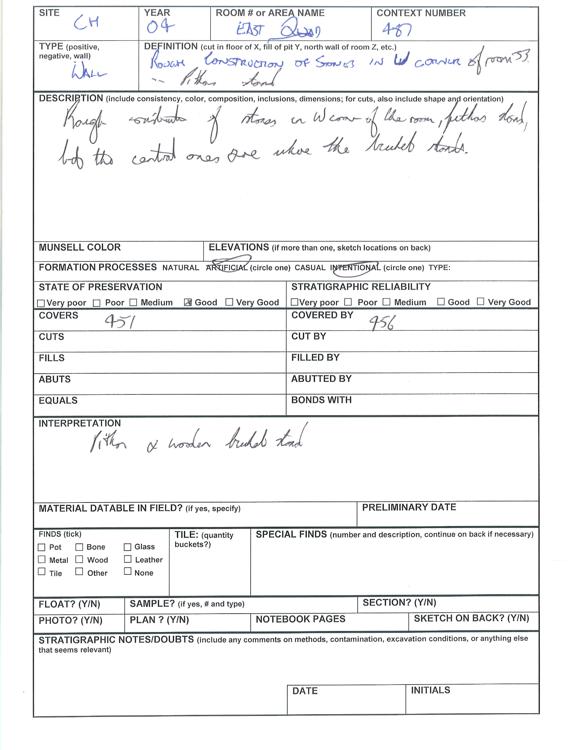 SITE CH
YEAR 04
ROOM # or AREA NAME EAST
CONTEXT NUMBER 487
TYPE (positive, negative, wall) WALL
DEFINITION (cut in floor of X, fill of pit Y, north wall of room Z, etc.)
ROUGH CONSTRUCTION OF STONES IN W CORNER of room 33
-- Pithos stand
DESCRIPTION (include consistency, color, composition, inclusions, dimensions; for cuts, also include shape and orientation)
Rough of stones in W corner of the room, pithos stand,
the central ones are where the bucket stands.
MUNSELL COLOR
ELEVATIONS (if more than one, sketch locations on back)
FORMATION PROCESSES NATURAL ARTIFICIAL (circle one) CASUAL INTENTIONAL (circle one) TYPE:
STATE OF PRESERVATION
STRATIGRAPHIC RELIABILITY
Very poor Poor Medium Good Very Good
Very poor Poor Medium Good Very Good
COVERS 451
COVERED BY 456
CUTS
CUT BY
FILLS
FILLED BY
ABUTS
ABUTTED BY
EQUALS
BONDS WITH
INTERPRETATION
Pithos & wooden bucket stand
MATERIAL DATABLE IN FIELD? (if yes, specify)
PRELIMINARY DATE
FINDS (tick)
Pot Bone Glass
Metal Wood Leather
Tile Other None
TILE: (quantity buckets?)
SPECIAL FINDS (number and description, continue on back if necessary)
FLOAT? (Y/N)
SAMPLE? (if yes, # and type)
SECTION? (Y/N)
PHOTO? (Y/N)
PLAN ? (Y/N)
NOTEBOOK PAGES
SKETCH ON BACK? (Y/N)
STRATIGRAPHIC NOTES/DOUBTS (include any comments on methods, contamination, excavation conditions, or anything else
that seems relevant)
DATE
INITIALS